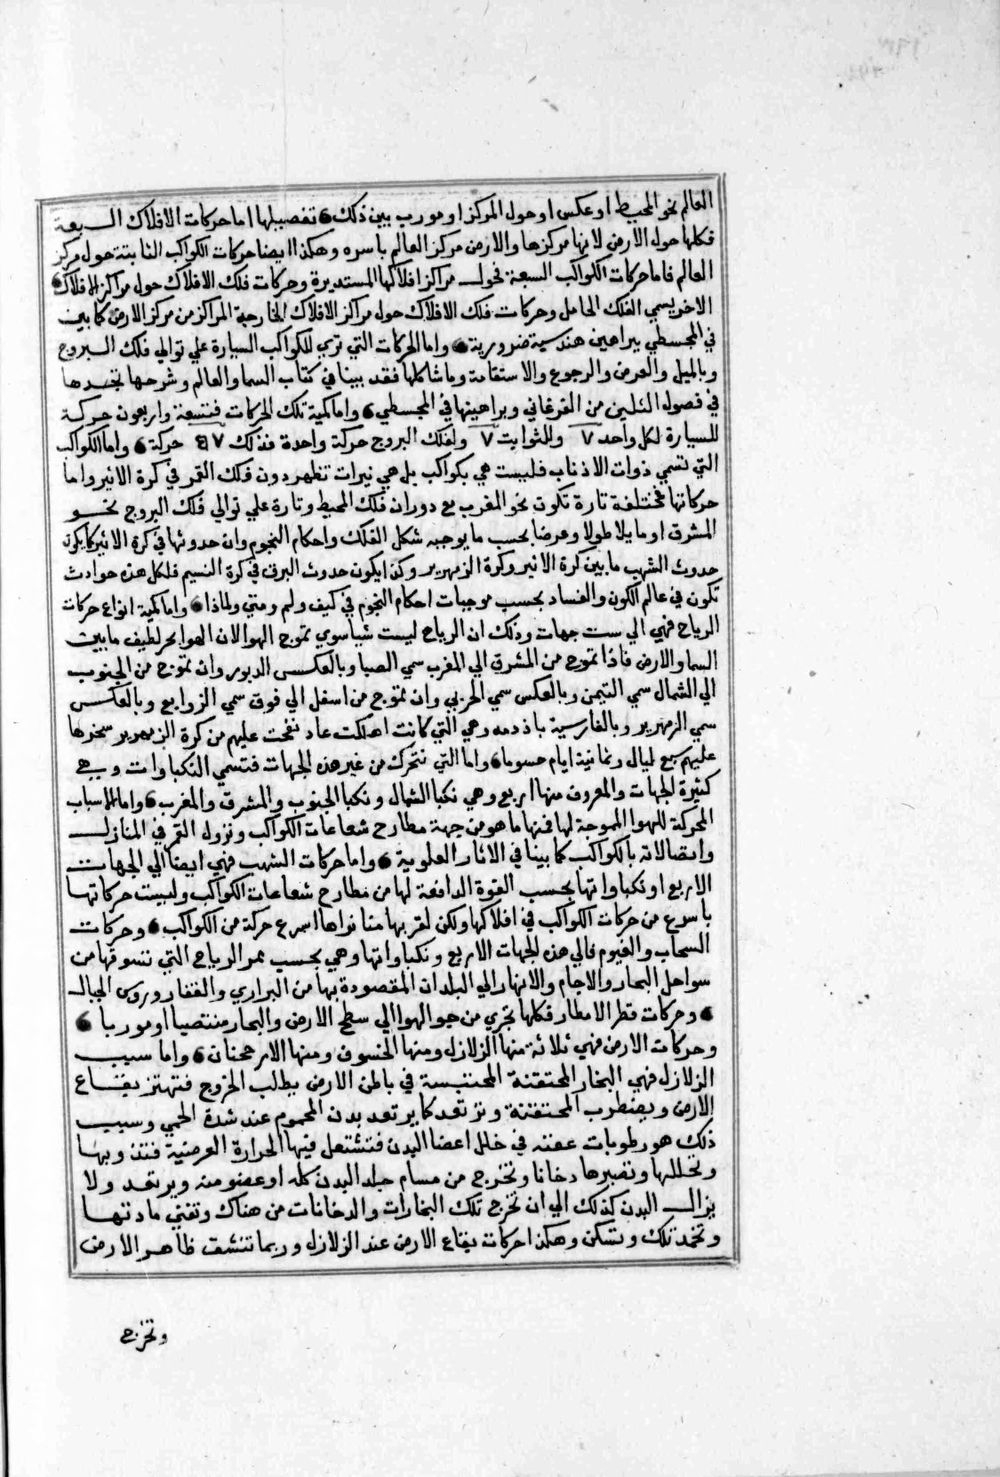 العالم نحو المحيط او عكس او حول المركز او مورب بين ذلك ٥ تفصيلها اما حركات الافلاك السبعة
فكلها حول الارض لانها مركزها والارض مركز العالم باسره وهكذا ايضا حركات الكواكب الثابتة حول مركز
العالم فاما حركات الكواكب السبعة نحول مراكز افلاكها المستديرة وحركات فلك الافلاك حول مراكز الافلاك
الاخر يسمي الفلك الحامل وحركات فلك الافلاك حول مراكز الافلاك الخارجة المراكز من مركز الارض كما بين
في المجسطي ببراهين هندسية ضرورية ٥ واما الحركات التي تري للكواكب السيارة علي توالي فلك البروج
وبالميل والعرض والرجوع والاستقامة وما شاكلها فقد بينا في كتاب السما والعالم وشرحها تجدها
في فصول الثلثين من الفرغاني وبراهينها في المجسطي ٥ واما كمية تلك الحركات فتسعة واربعون حركة
للسيارة لكل واحد ٧ وللثوابت ٧ ولفلك البروج حركة واحدة فذلك حركة ٥ واما الكواكب
التي تسمي ذوات الاذناب فليست هي بكواكب بل هي نيرات تظهر دون فلك القمر في كرة الاثير واما
حركاتها فمختلفة تارة تكون نحو المغرب مع دوران فلك المحيط وتارة علي توالي فلك البروج نحو
المشرق او مايلا طولا وعرضا بحسب ما يوجبه شكل الفلك واحكام النجوم وان حدوثها في كرة الاثير كما يكون
حدوث الشهب ما بين كرة الاثير وكرة الزمهرير وكذا يكون حدوث البرق في كرة النسيم فلكل هذه حوادث
تكون في عالم الكون والفساد بحسب موجبات احكام النجوم في كيف ولم ومتي ولماذا ٥ واما كمية انواع حركات
الرياح فهي الي ست جهات وذلك ان الرياح ليست شيا سوي تموج الهوا لان الهوا بحر لطيف ما بين
السما والارض فاذا تموج من المشرق الي المغرب سمي الصبا وبالعكس الدبور وان تموج من الجنوب
الي الشمال سمي التيمن وبالعكس سمي الجربي وان تموج من اسفل الي فوق سمي الزوابع وبالعكس
سمي الزمهرير وبالفارسية باذدمه وهي التي كانت اهلكت عاد نفخت عليهم من كرة الزمهرير سخرها
عليهم سبع ليال وثمانية ايام حسوما ٥ واما التي تتحرك من غير هذه الجهات فتسمي النكباوات وهي
كثيرة الجهات والمعروف منها اربع وهي نكبا الشمال ونكبا الجنوب والمشرق والمغرب ٥ واما الاسباب
المحركة للهوا الموجة لها فمنها ما هو من جهة مطارح شعاعات الكواكب ونزول القمر في المنازل
واتصالاته بالكواكب كما بينا في الاثار العلوية ٥ واما حركات الشهب فهي ايضا الي الجهات
الاربع او نكباواتها بحسب القوة الدافعة لها من مطارح شعاعات الكواكب وليست حركاتها
باسرع من حركات الكواكب في افلاكها ولكن لقربها منا نراها اسرع حركة من الكواكب ٥ وحركات
السحاب والغيوم فالي هذه الجهات الاربع ونكباواتها وهي بحسب ممر الرياح التي تسوقها من
سواحل البحار والاجام والانهار الي البلدان المقصودة بها من البراري والقفار وروس الجبال
٥ وحركات قطر الامطار فكلها تجري من جو الهوا الي سطح الارض والبحار منتصبا او موربا ٥
وحركات الارض فهي ثلاثة منها الزلازل ومنها الخسوف ومنها الارجحنان ٥ واما سبب
الزلازل فهي البخار المحتقنة المحتبسة في باطن الارض يطلب الخروج فتهتز بقاع
الارض ويضطرب المحتقنة وترتعد كما يرتعد بدن المحموم عند شدة الحمي وسبب
ذلك هو رطوبات عفنه في خلل اعضا البدن فتشتعل فيها الحرارة العرضية فتذوبها
وتحللها وتصيرها دخانا وتخرج من مسام جلد البدن كله او عضو منه ويرتعد ولا
يزال البدن كذلك الي ان تخرج تلك البخارات والدخانات من هناك وتفني مادتها
وتخمد تلك وتسكن وهكذا حركات بقاع الارض عند الزلازل وربما تنشق ظاهر الارض
وتخرج